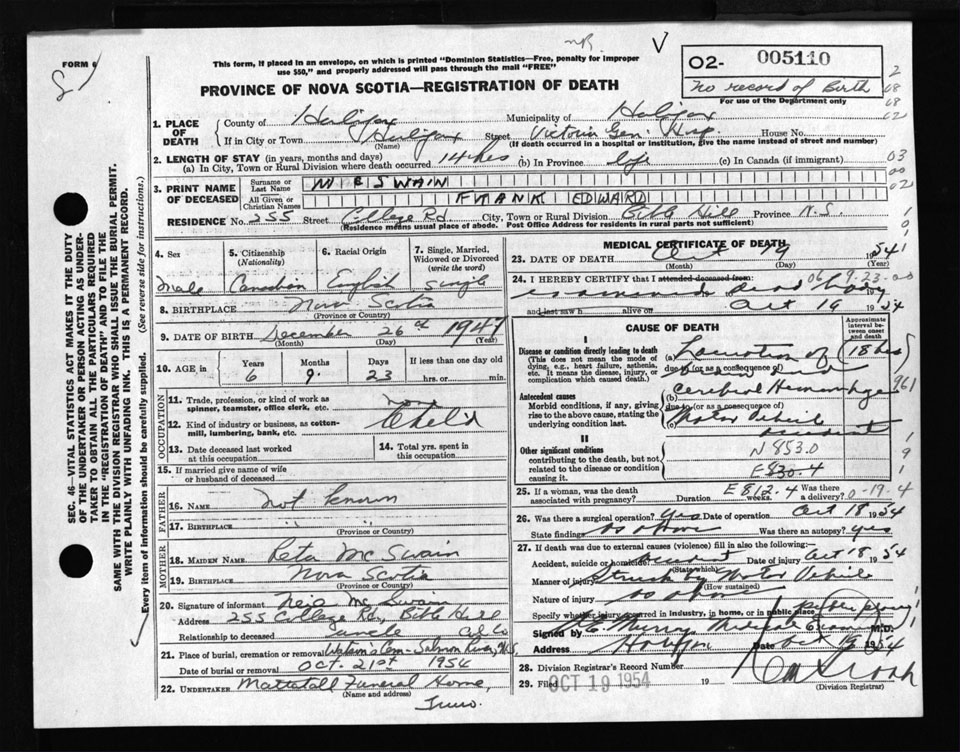 FORM 6
This form, if placed in an envelope, on which is printed "Dominion Statistics—Free, penalty for improper
use $50," and properly addressed will pass through the mail "FREE"
PROVINCE OF NOVA SCOTIA—REGISTRATION OF DEATH
O2- 005110
No record of Birth
For use of the Department only
1. PLACE OF DEATH
County of Halifax Municipality of Halifax
If in City or Town Halifax Street Victoria Gen. Hosp. House No.
(Name) (If death occurred in a hospital or institution, give the name instead of street and number)
2. LENGTH OF STAY (in years, months and days)
(a) In City, Town or Rural Division where death occurred 14 hrs. (b) In Province life (c) In Canada (if immigrant)
3. PRINT NAME OF DECEASED
Surname or Last Name McSWAIN
All Given or Christian Names FRANK EDWARD
RESIDENCE No. 255 Street College Rd. City, Town or Rural Division Bible Hill Province N.S.
(Residence means usual place of abode. Post Office Address for residents in rural parts not sufficient)
4. Sex Male
5. Citizenship (Nationality) Canadian
6. Racial Origin English
7. Single, Married, Widowed or Divorced (write the word) Single
8. BIRTHPLACE Nova Scotia
(Province or Country)
9. DATE OF BIRTH December 26th 1947
(Month) (Day) (Year)
10. AGE in Years 6 Months 9 Days 23 If less than one day old hrs. or min.
OCCUPATION
11. Trade, profession, or kind of work as spinner, teamster, office clerk, etc.
12. Kind of industry or business, as cotton-mill, lumbering, bank, etc. Child
13. Date deceased last worked at this occupation
14. Total yrs. spent in this occupation
15. If married give name of wife or husband of deceased
FATHER
16. NAME Not Known
17. BIRTHPLACE " "
(Province or Country)
MOTHER
18. MAIDEN NAME Reta McSwain
19. BIRTHPLACE Nova Scotia
(Province or Country)
20. Signature of informant McSwain
Address 255 College Rd., Bible Hill
Relationship to deceased uncle Col Co
21. Place of burial, cremation or removal Watson's Cem- Salmon River, N.S.
Date of burial or removal Oct. 21st 1954
22. UNDERTAKER Mattatall Funeral Home,
(Name and address)
Truro.
MEDICAL CERTIFICATE OF DEATH
23. DATE OF DEATH Oct 19 1954
(Month) (Day)
24. I HEREBY CERTIFY that I attended deceased from:
examined dead body
and last saw h alive on Oct 19 1954
CAUSE OF DEATH
Approximate interval between onset and death
I
Disease or condition directly leading to death
(This does not mean the mode of dying, e.g., heart failure, asthenia, etc. It means the disease, injury, or complication which caused death.)
(a) Laceration of 18 hrs
due to (or as a consequence of)
Antecedent causes
Morbid conditions, if any, giving rise to the above cause, stating the underlying condition last.
(b) Cerebral Hemorrhage
due to (or as a consequence of)
(c) Motor Vehicle accident
II
Other significant conditions
contributing to the death, but not related to the disease or condition causing it.
N853.0
E830.4
E812.4
25. If a woman, was the death associated with pregnancy? Duration weeks. Was there a delivery? 0-19-4
26. Was there a surgical operation? yes Date of operation Oct 18 1954
State findings as above Was there an autopsy? yes
27. If death was due to external causes (violence) fill in also the following:—
Accident, suicide or homicide? accident Date of injury Oct 18 1954
(State which)
Manner of injury Struck by Motor Vehicle
(How sustained)
Nature of injury as above
Specify whether injury occurred in industry, in home, or in public place public
Signed by Murray Medical Examiner M.D.
Address Halifax Date Oct 1954
28. Division Registrar's Record Number
29. Filed OCT 19 1954 19
(Division Registrar)
SEC. 46—VITAL STATISTICS ACT MAKES IT THE DUTY
OF THE UNDERTAKER OR PERSON ACTING AS UNDERTAKER TO OBTAIN ALL THE PARTICULARS REQUIRED
IN THE "REGISTRATION OF DEATH" AND TO FILE THE
SAME WITH THE DIVISION REGISTRAR WHO SHALL ISSUE THE BURIAL PERMIT.
WRITE PLAINLY WITH UNFADING INK. THIS IS A PERMANENT RECORD.
Every item of information should be carefully supplied. (See reverse side for instructions.)